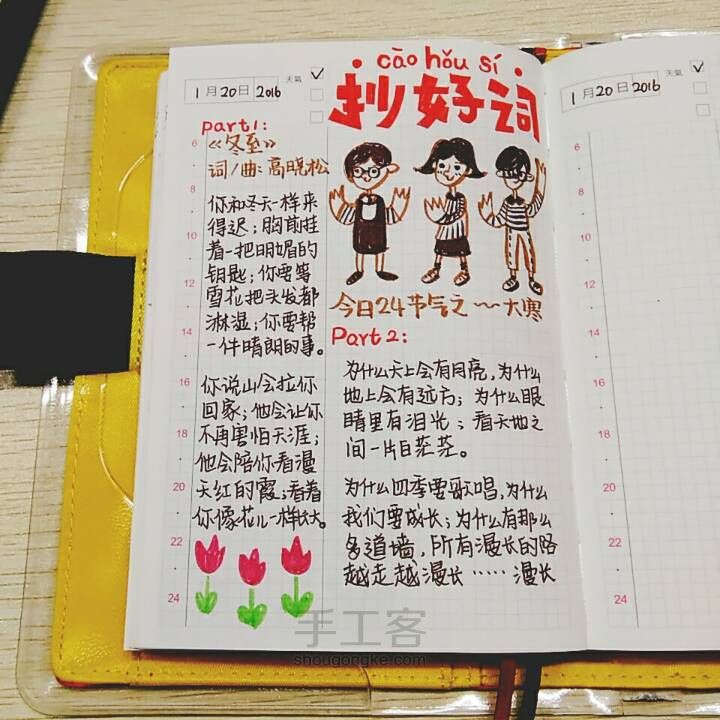 cào hǒu sí
抄好词
1月20日2016
天氣
part1:
《冬至》
词/曲:高晓松
你和冬天一样来
得迟;胸前挂
着一把明媚的
钥匙;你要等
雪花把头发都
淋湿;你要帮
一件晴朗的事。
你说山会拉你
回家;他会让你
不再害怕天涯;
他会陪你看漫
天红的霞;看着
你像花儿一样长大。
今日24节气之~~大寒
Part 2:
为什么天上会有月亮,为什么
地上会有远方;为什么眼
睛里有泪光;看天地之
间一片白茫茫。
为什么四季要歌唱,为什么
我们要成长;为什么有那么
多道墙,所有漫长的路
越走越漫长……漫长
6
8
10
12
14
16
18
20
22
24
1月20日2016
天氣
6
8
10
12
14
16
18
20
22
24
手工客
shougongke.com